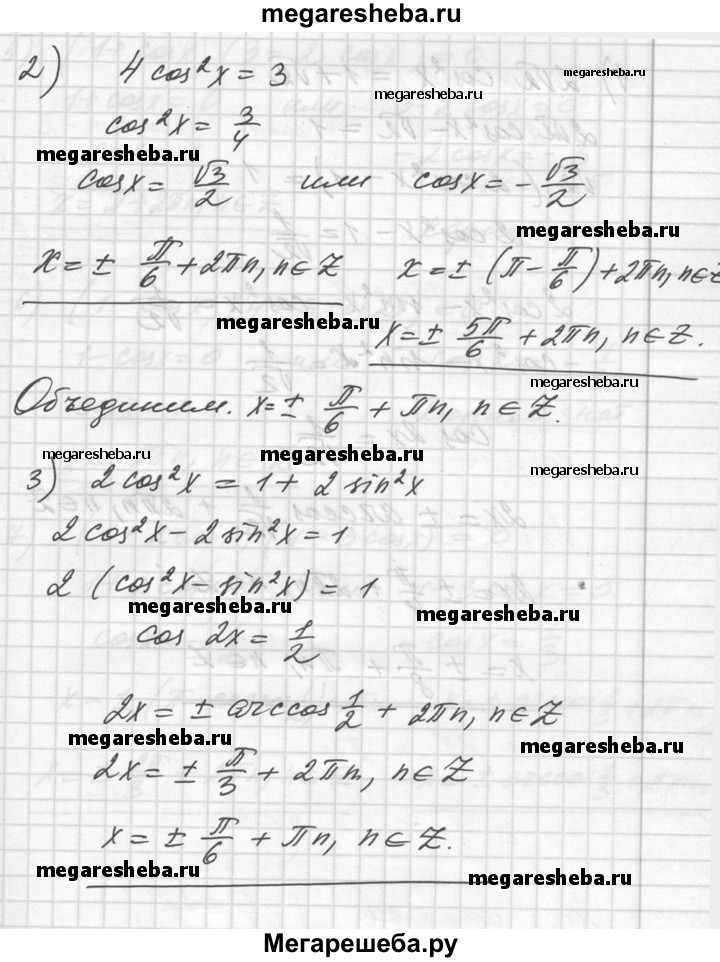 megaresheba.ru
2) 4 cos²x = 3
megaresheba.ru
cos²x = 3/4
megaresheba.ru
cosx = √3/2 или cosx = -√3/2
megaresheba.ru
x = ± π/6 + 2πn, n ∈ Z x = ± (π - π/6) + 2πn, n ∈ Z
megaresheba.ru
x = ± 5π/6 + 2πn, n ∈ Z.
megaresheba.ru
Объединим. x = ± π/6 + πn, n ∈ Z.
megaresheba.ru megaresheba.ru megaresheba.ru
3) 2 cos²x = 1 + 2 sin²x
2 cos²x - 2 sin²x = 1
2 (cos²x - sin²x) = 1
megaresheba.ru megaresheba.ru
cos 2x = 1/2
2x = ± arccos 1/2 + 2πn, n ∈ Z
megaresheba.ru megaresheba.ru
2x = ± π/3 + 2πn, n ∈ Z
x = ± π/6 + πn, n ∈ Z.
megaresheba.ru megaresheba.ru
Мегарешеба.ру